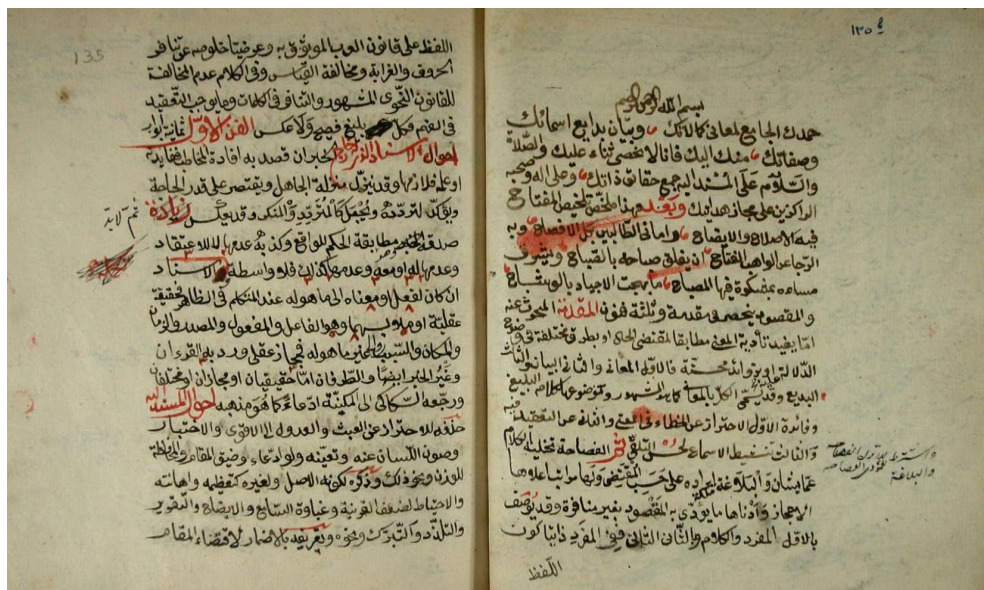 بسم الله الرحمن الرحيم
حمدك الجامع لمعانى كمالاتك وبيان بدايع اسمائك
وصفاتك منك اليك فانا لا نحصى ثناء عليك والصلاة
والسلام على المسند اليه جميع حقائق ذاتك وعلى اله وصحبه
الراكزين على مجاز هدايتك وبعد فهذا ملخص تلخيص المفتاح
فيه الاصلاح والايضاح وامانى الطالبين كل الافصاح وبه
الرجا من الواهب الفتاح ان يفلق صباحه بالصباح ويشرف
مساءه بمشكوة فيها المصباح ما بهجت الاجياد بالوشاح
والمقصود ينحصر فى مقدمة وثلثة فنون المقدمة المبحوث عنه
اما يفيد تأدية المعنى مطابقا لمقتضى الحال او بطرق مختلفة فى وضوح
الدلالة او يزو انه حسنة فالاول المعانى والثانى البيان والثالث
البديع وقد يسمى الكل بالمعانى كما هو المشهور وموضوعها كلام البليغ
وفائدة الاول الاحتراز عن الخطاء فى المعنى والثانى عن التعقيد فيه
والثالث تنشيط الاسماع لحسن التلقى ثم الفصاحة تخلية الكلام
عما يشان والبلاغة ايراده على حسب المقتضى ولها مراتب اعلاها
الاعجاز وادناها ما يؤدى به المقصود بغير منافرة وقد يوصف
بالاول المفرد والكلام وبالثانى الثانى ففى المفرد ذا بان كون
اللفظ
١٣٥
135
اللفظ على قانون العرب الموثوق به وعرضيتا خلوصه عن تنافر
الحروف والغرابة ومخالفة القياس وفى الكلام عدم المخالفة
للقانون النحوى المشهور والتنافى فى الكلمات وما يوجب التعقيد
فى الفهم فكل بليغ فصيح ولا عكس الفن الاول ثمانية ابواب
احوال الاسناد الخبرى الخبر ان قصد به افادة المخاطب ففايدة
او علمه فلازمها وقد ينزل منزلة الجاهل ويقتصر على قدر الحاجة
ويؤكد لتردده ويجعل كالمتردد والمنكر وقد يعكس زيادة
صدق الخبر مطابقة الحكم للواقع وكذبه عدمها لا للاعتقاد
وعدمها له او معه وعدمها كذلك فلا واسطة والاسناد
ان كان لفعل او معناه الى ما هو له عند المتكلم فى الظاهر فحقيقة
عقلية او ملابسهما وهو الفاعل والمفعول والمصدر والزمان
والمكان والسبب والغير ما هو له فمجاز عقلى ورد به القرءان
وغير الخبر ايضا والطرفان اما حقيقيان او مجازان او مختلفان
ورجعه السكاكى الى المكنية ادعاء كما هو مذهبه احوال المسند اليه
حذفه للاحتراز عن العبث والعدول الى الاقوى والاختبار
وصون اللسان عنه وتعينه ولو ادعاء وضيق المقام والمحافظة
للوزن ونحو ذلك وذكره لكونه الاصل ولغيره كتعظيمه واهانته
والاحتياط لضعف القرينة وغباوة السامع والايضاح والتقرير
والتلذذ والتبرك ونحوه وتعريفه بالاضمار لاقتضاء المقام